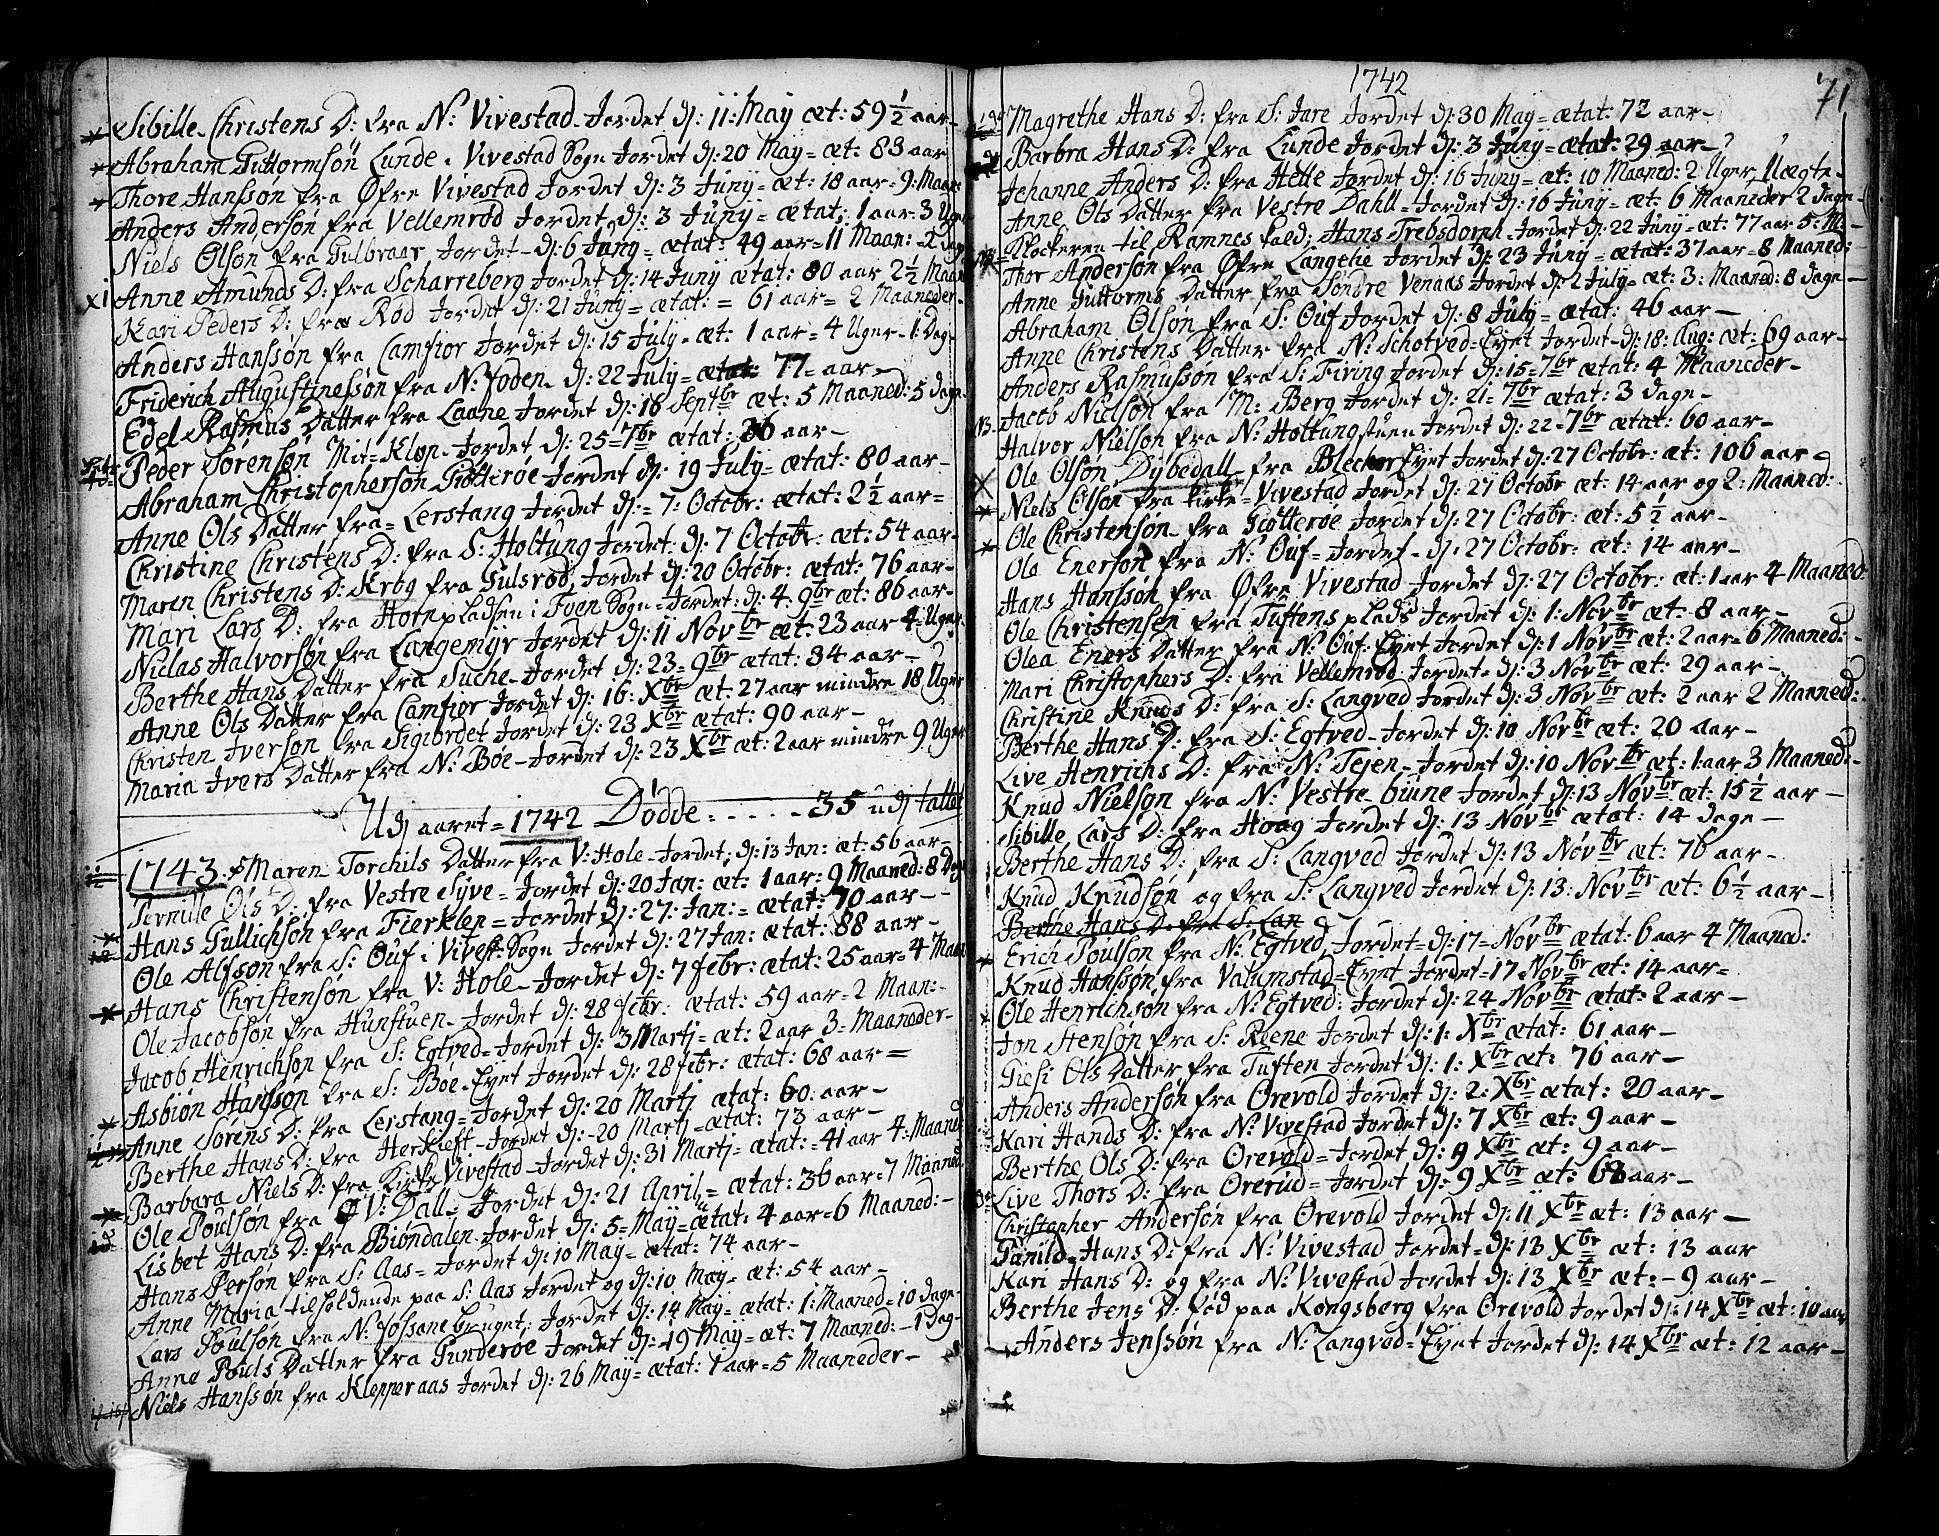 Sibille Christens D: fra N: Vivestad Jordet dj: 11: May æt: 59 ½ aar
Abraham Guttormsøn Lunde i Vivestad Sogn Jordet dj: 20 May = æt: 83 aar
Thore Hanssøn fra Øfre Vivestad Jordet dj: 3 Junij = æt: 18 aar = 9: Maan:
Anders Andersøn fra Vellemrød Jordet dj: 3 Junij = ætat: 1 aar = 3 Uger
Niels Olsøn fra Gulbraar Jordet dj: 6 Juny = ætat: 49 aar = 11 Maan: = 1 dag
Anne Amunds D: fra Scharreberg Jordet dj: 14 Junij ætat: 80 aar 2 ½ Maan
Kari Peders D: fra Rød Jordet dj: 21 Juny = ætat: = 61 aar = 2 Maaneder
Anders Hanssøn fra Camfior Jordet dj: 15 July = æt: 1 aar = 4 Uger = 1: Dag
Friderich Augustinessøn fra N: Foden dj: 22 July = ætat: 77 = aar
Edel Rasmus Datter fra Laane Jordet dj: 16 Septbr æt: 5 Maaned: 5 dage
Peder Sorensøn Mit=Kløp Jordet dj: 25 = 7br ætat: 36 aar
Abraham Christophersøn Giøtterøe Jordet dj: 19 July = ætat: 80 aar
Anne Ols Datter fra = Lerstang Jordet dj: = 7: Octobr: ætat: 2 ½ aar =
Christine Christens D: fra S: Holtung Jordet dj: 7 Octobr: æt: 54 aar
Maren Christens D: Krbg fra Gulsrød, Jordet dj: 20 Octobr: ætat: 76 aar
Mari Lars D: fra Hornpladsen i Fven Sogn = Jordet: dj: 4. 9br æt: 86 aar
Niclas Halvorsøn fra Langemyr Jordet dj: 11 Novbr æt: 23 aar 4 = Uger
Berthe Hans Datter fra Suche Jordet dj: 23 = 9br ætat: 34 aar
Anne Ols Datter fra Camfior Jordet dj: 16: Xbr æt: 27 aar mindre 18 Uger
Christen Iversøn fra Sigiordet Jordet dj: 23 Xbr ætat: 90 aar
Maria Ivers Datter fra N: Bøe Jordet dj: 23 Xbr æt: 2 aar mindre 9 Uger
Udj aaret = 1742 Dødde : . . . . . 35 udj tallet
1743. Maren Torchils Datter fra V: Hole Jordet: dj: 13 Jan: æt: 56 aar
Pernille Ols D: fra Vestre Syve = Jordet dj: 20 Jan: æt: 1 aar: 9 Maaned: 8 Dag
Hans Gullichsøn fra Fierklep = Jordet dj: 27: Jan: = ætat: 70 aar
Ole Alfsøn fra S: Ouf i Vivest: Sogn Jordet dj: 27 Jan: ætat: 88 aar
Hans Christensøn fra V: Hole Jordet dj: 7 febr: ætat: 25 aar = 4 Maan
Ole Jacobsøn fra Hunstuen Jordet dj: 28 febr: ætat: 59 aar = 2 Maan:
Jacob Henrichsøn fra S: Egtved = Jordet dj: 3 Martj = æt: 2 aar 3 = Maaneder
Asbiön Hanssøn fra S: Bøe Eyet Jordet dj: 28 febr: ætat: 68 aar =
Anne Sørens D: fra Lerstang = Jordet dj: 20 Martj ætat: 60 aar
Berthe Hans D: fra Herkieft Jordet dj: 20 Martj = ætat: 73 aar
Barbara Niels D: fra Kirke Vivestad Jordet dj: 31 Martj = ætat: 41 aar 4: Maaned
Ole Poulsøn fra V: Dall = Jordet dj: 21 April = ætat: 36 aar = 7 Maaned
Lisbet Hans D: fra Biøndalen Jordet dj: 5 = May = ætat: 4 aar = 6 Maaned:
Hans Persøn fra S: Aas = Jordet dj: 10 May = ætat: 74 aar
Anne Maria tilholdende paa S: Aas Jordet og dj: 10 May = æt: 54 aar
Lars Poulsøn fra N: Fossanebruget: Jordet dj: 14 May = ætat: 1: Maaned = 10 dage
Anne Pouls Datter fra Gunderøe Jordet dj: 19 May = æt: 7 Maaned: = 1 Dag
Niels Hanssøn fra Klepperaas Jordet dj: 26 May = ætat: 1 aar = 5 Maaneder
1742
71
Magrethe Hans D: fra S: Jare Jordet dj: 30 May = ætat: 72 aar
Barbra Hans D: fra Lunde Jordet dj: 3 Juny = ætat: 29 aar
Jehanne Anders D: fra Helle Jordet dj: 16 Juny = æt: 10 Maaned: 2 Uger Uægte
Anne Ols Datter fra Vestre Dahll = Jordet dj: 16 Juny = æt: 6 Maaneder 2 dage
Klockeren til Ramnes Kald: Hans Trebsdorph Jordet dj: 22 Juny = æt: 77 aar 5: M:
Thor Andersøn fra Øfre Langethe Jordet dj: 23 Juny = ætat: 37 aar = 8 Maaned:
Anne Guttorms Datter fra Søndre Venaas Jordet dj: 2 July = æt: 3: Maaned: 8 dage
Abraham Olsøn fra S: Ouf Jordet dj: 8 July = ætat: 46 aar
Anne Christens Datter fra N: Schotved = Eyet Jordet dj: 18: Aug: æt: 69 aar
Anders Rasmussøn fra S: Firing Jordet dj: 15 = 7br ætat: 4 Maaneder
Jacob Nielsøn fra M: Berg Jordet dj: 21 = 7br ætat: 3 dage
Halvor Nielsøn fra N: Holtungstuen Jordet dj: 22 = 7br ætat: 60 aar
Ole Olsøn Dybedall fra Blecker Eyet Jordet dj: 27 Octobr: æt: 106 aar =
Niels Olsøn fra Kirke = Vivestad Jordet dj: 27 Octobr æt: 14 aar og 2: Maaned:
Ole Christensøn fra Giøtterøe Jordet dj: 27 Octobr: æt: 5 ½ aar
Ole Enersøn fra N: Ouf = Jordet dj: 27 Octobr: æt: 14 aar
Hans Hanssøn fra Øfre Vivestad Jordet dj: 27 Octobr: æt: 1 aar 4 Maaned:
Ole Christensen fra Tuftens plads Jordet dj: 1: Novbr æt: 8 aar
Olea Eners Datter fra N: Ouf Eyet Jordet dj: 1 Novbr æt: 2 aar = 6 Maaned:
Mari Christophers D: fra Vellemrød Jordet = dj: 3 Novbr æt: 29 aar
Christine Knuds D: fra S: Langved Jordet dj: 3 Novbr æt: 2 aar 2 Maaned:
Berthe Hans D: fra S: Egtved Jordet dj: 10 Novbr æt: 20 aar
Live Henrichs D: fra N: Tejen Jordet dj: 10 Novbr æt: 1 aar 3 Maaned:
Knud Nielsøn fra N: Vestre buine Jordet dj: 13 Novbr æt: 15 ½ aar
Sibille Lars D: fra Hoag Jordet dj: 13 Novbr ætat: 14 dage
Berthe Hans D: fra S: Langved Jordet dj: 13 Novbr æt: 76 aar
Knud Knudsøn og fra S: Langved Jordet dj: 13: Novbr æt: 6 ½ aar
Berthe Hans D: fra S: Lan
Erich Poulsøn fra N: Egtved Jordet = dj: 17 = Novbr ætat: 6 aar 4 Maaned:
Knud Hanssøn fra Valumstad = Eyet Jordet = 17 Novbr æt: 14 aar =
Ole Henrichsøn fra N: Egtved: Jordet dj: 24 Novbr ætat: 2 aar
Jon Stensøn fra S: Reene Jordet dj: 1: Xbr ætat: 61 aar
Giesi Ols Datter fra Tuften Jordet dj: 1: Xbr æt: 76 aar
Anders Andersøn fra Orevold Jordet dj: 2: Xbr ætat: 20 aar
Kari Hands D: fra N: Vivestad Jordet dj: 7 Xbr æt: 9 aar
Berthe Ols D: fra Orevold = Jordet dj: 9 Xbr æt: 9 aar
Live Thors D: fra Orerud = Jordet dj: 9 Xbr æt: 68 aar
Christopher Andersøn fra Orevold Jordet dj: 11 Xbr æt: 13 aar
Gunild Hans D: fra N: Vivestad Jordet = dj: 13 Xbr æt: 13 aar
Kari Hans D: og fra N: Vivestad Jordet dj: 13 Xbr æt: 9 aar
Berthe Jens D: fød paa Kongsberg fra Orevold Jordet dj: 14 Xbr æt: 10 aar
Anders Jenssøn fra N: Langved = Eyet Jordet dj: 14 Xbr æt: 12 aar